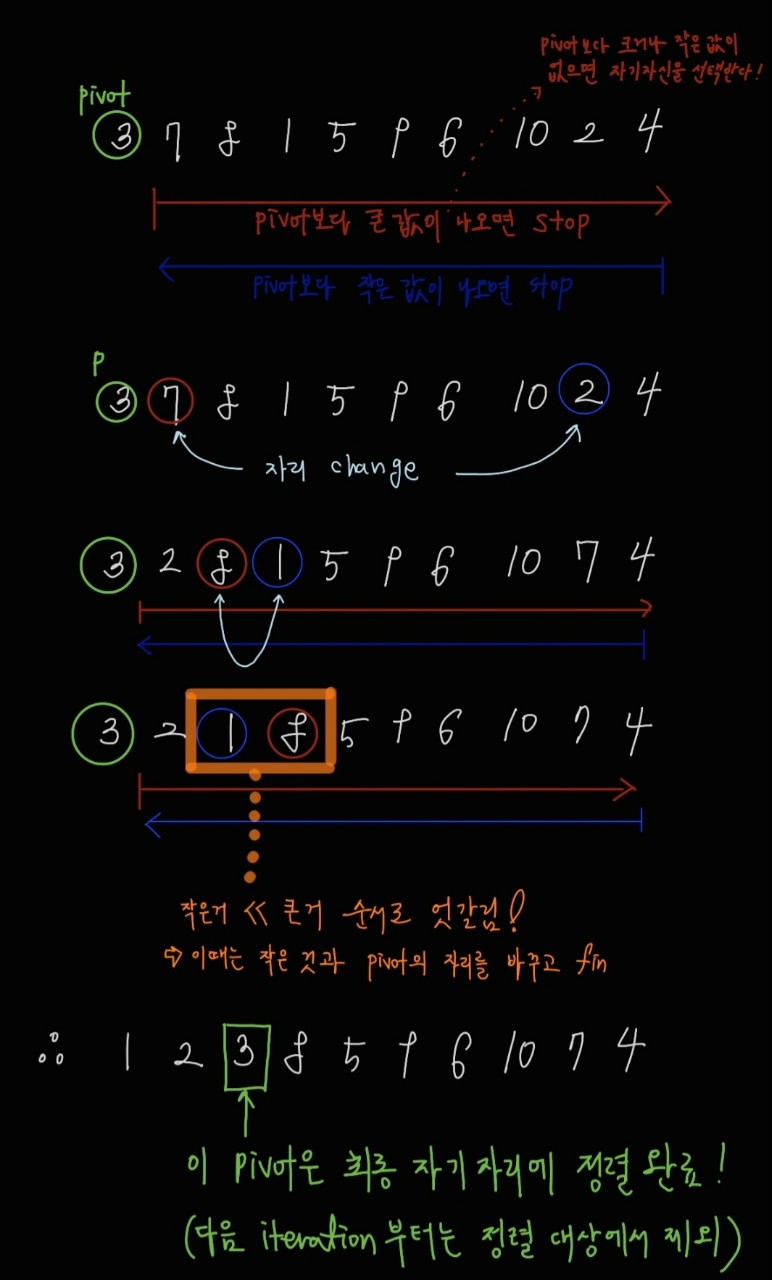 pivot보다 크거나 작은 값이
없으면 자기자신을 선택한다!
pivot
3 7 8 1 5 9 6 10 2 4
pivot보다 큰 값이 나오면 stop
pivot보다 작은 값이 나오면 stop
P
3 7 8 1 5 9 6 10 2 4
자리 change
3 2 8 1 5 9 6 10 7 4
3 2 1 8 5 9 6 10 7 4
작은거 << 큰거 순서로 엇갈림!
⇨ 이때는 작은 것과 pivot의 자리를 바꾸고 fin
∴ 1 2 3 8 5 9 6 10 7 4
이 pivot은 최종 자기 자리에 정렬 완료!
(다음 iteration부터는 정렬 대상에서 제외)